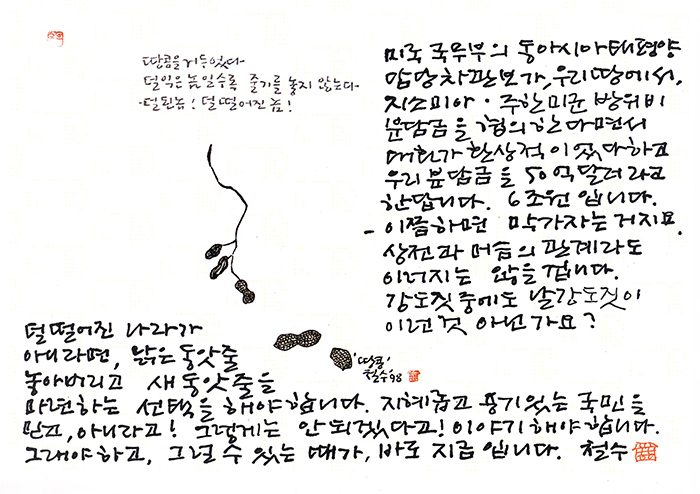 땅콩을 거두었다-
덜익은 놈일수록 줄기를 놓지 않는다-
·덜된놈! 덜떨어진 놈!
미국 국무부의 동아시아태평양
담당차관보가, 우리땅에서,
지소미아 · 주한미군 방위비
분담금을 협의한다면서
대화가 환상적이었다하고
우리 분담금을 50억달러라고
한답니다. 6조원입니다.
- 이쯤하면 막가자는 거지요.
상전과 머슴의 관계라도
이러지는 않을 겁니다.
강도짓중에도 날강도짓이
이런것 아닌가요?
'땅콩'
철수98
덜떨어진 나라가
아니라면, 낡은동앗줄
놓아버리고 새동앗줄을
마련하는 선택을 해야합니다. 지혜롭고 용기있는 국민을
믿고, 아니라고! 그렇게는 안되겠다고! 이야기해야합니다.
그래야하고, 그럴 수 있는 때가, 바로 지금입니다. 철수